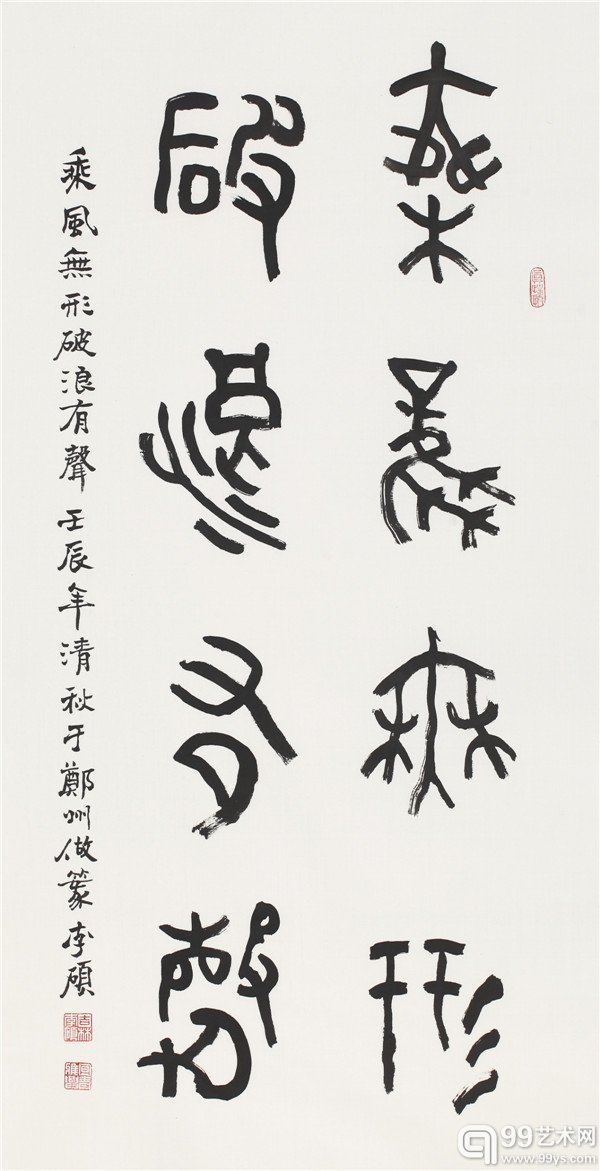 乘風無形
破浪有聲
乘風無形破浪有聲壬辰年清秋于鄭州做篆李碩
99艺术网
www.99ys.com